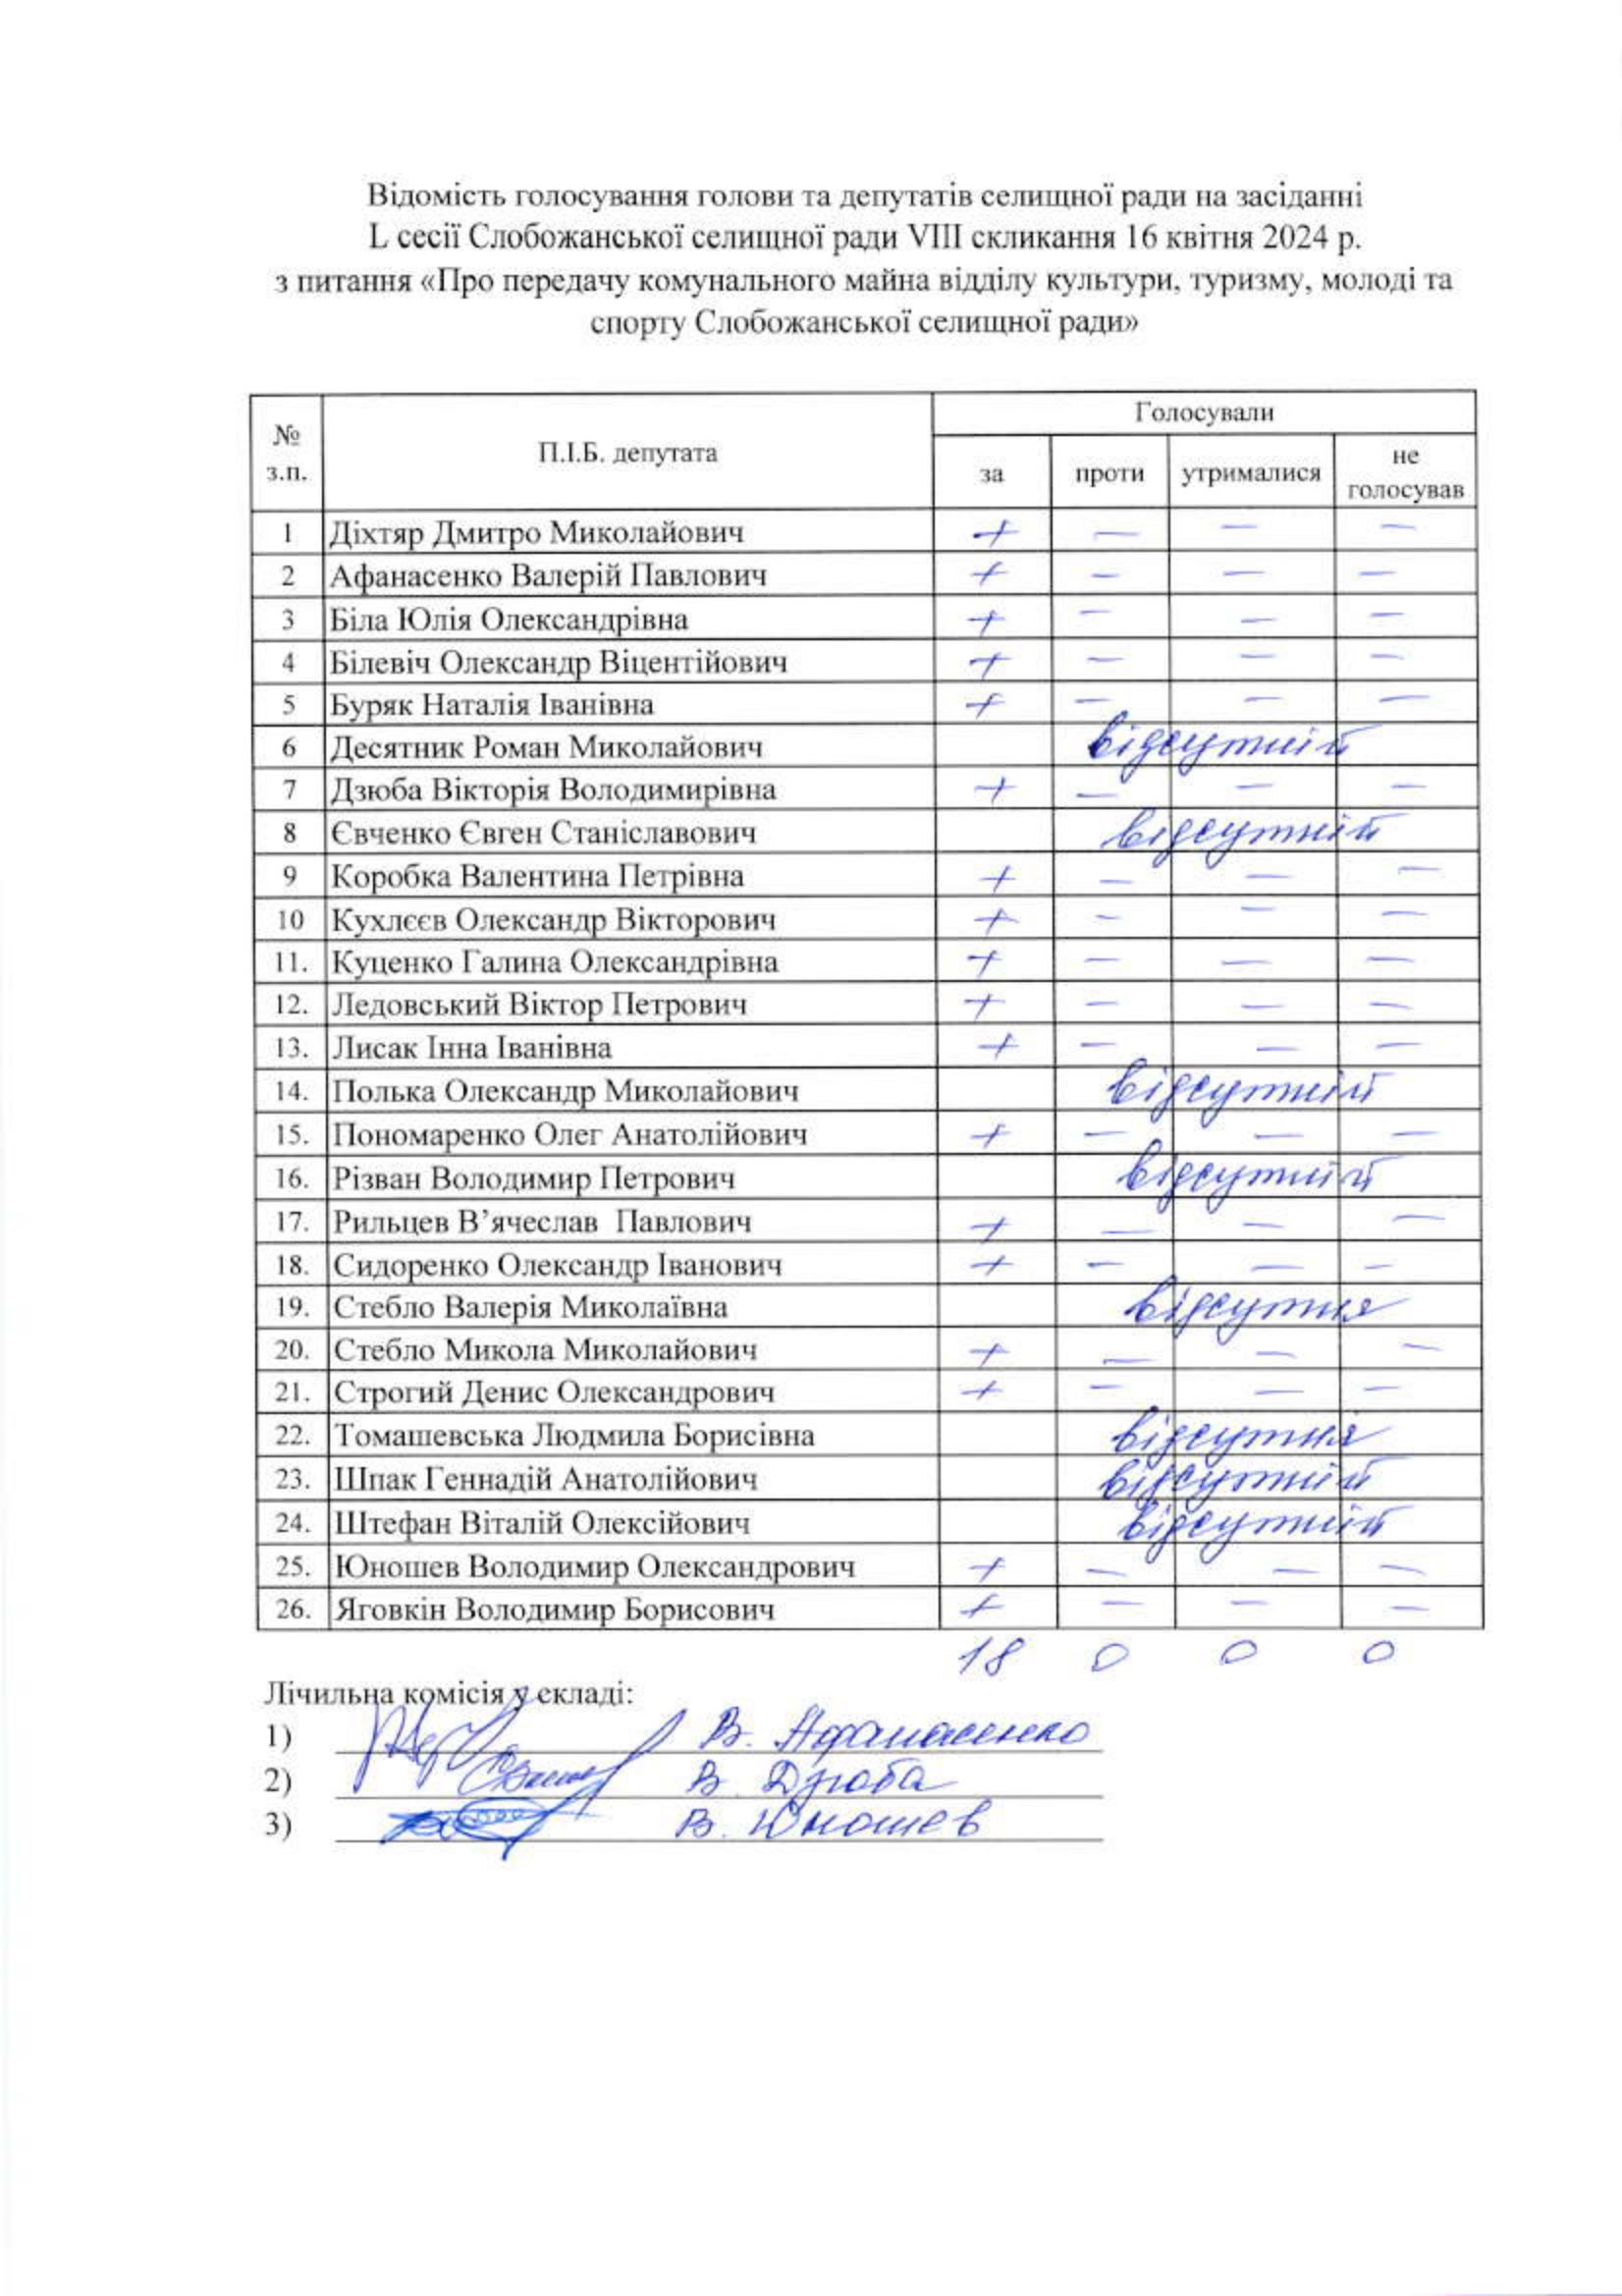 Відомість голосування голови та депутатів селищної ради на засіданні
L сесії Слобожанської селищної ради VIII скликання 16 квітня 2024 р.
з питання «Про передачу комунального майна відділу культури, туризму, молоді та
спорту Слобожанської селищної ради»
№ з.п. П.І.Б. депутата Голосували
за проти утрималися не голосував
1 Діхтяр Дмитро Миколайович + — — —
2 Афанасенко Валерій Павлович + — — —
3 Біла Юлія Олександрівна + — — —
4 Білевіч Олександр Віцентійович + — — —
5 Буряк Наталія Іванівна + — — —
6 Десятник Роман Миколайович відсутній
7 Дзюба Вікторія Володимирівна + — — —
8 Євченко Євген Станіславович відсутній
9 Коробка Валентина Петрівна + — — —
10 Кухлєєв Олександр Вікторович + — — —
11. Куценко Галина Олександрівна + — — —
12. Ледовський Віктор Петрович + — — —
13. Лисак Інна Іванівна + — — —
14. Полька Олександр Миколайович відсутній
15. Пономаренко Олег Анатолійович + — — —
16. Різван Володимир Петрович відсутній
17. Рильцев В’ячеслав Павлович + — — —
18. Сидоренко Олександр Іванович + — — —
19. Стебло Валерія Миколаївна відсутня
20. Стебло Микола Миколайович + — — —
21. Строгий Денис Олександрович + — — —
22. Томашевська Людмила Борисівна відсутня
23. Шпак Геннадій Анатолійович відсутній
24. Штефан Віталій Олексійович відсутній
25. Юношев Володимир Олександрович + — — —
26. Яговкін Володимир Борисович + — — —
18 0 0 0
Лічильна комісія у складі:
1) В. Афанасенко
2) В. Дзюба
3) В. Юношев